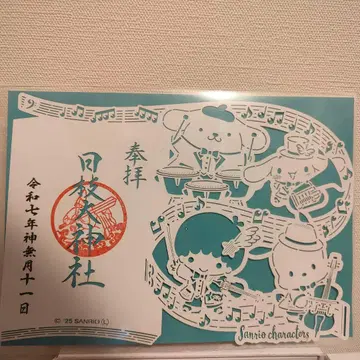 奉拝
日枝大神社
令和七年神無月十一日
© '25 SANRIO(L)
Sanrio characters